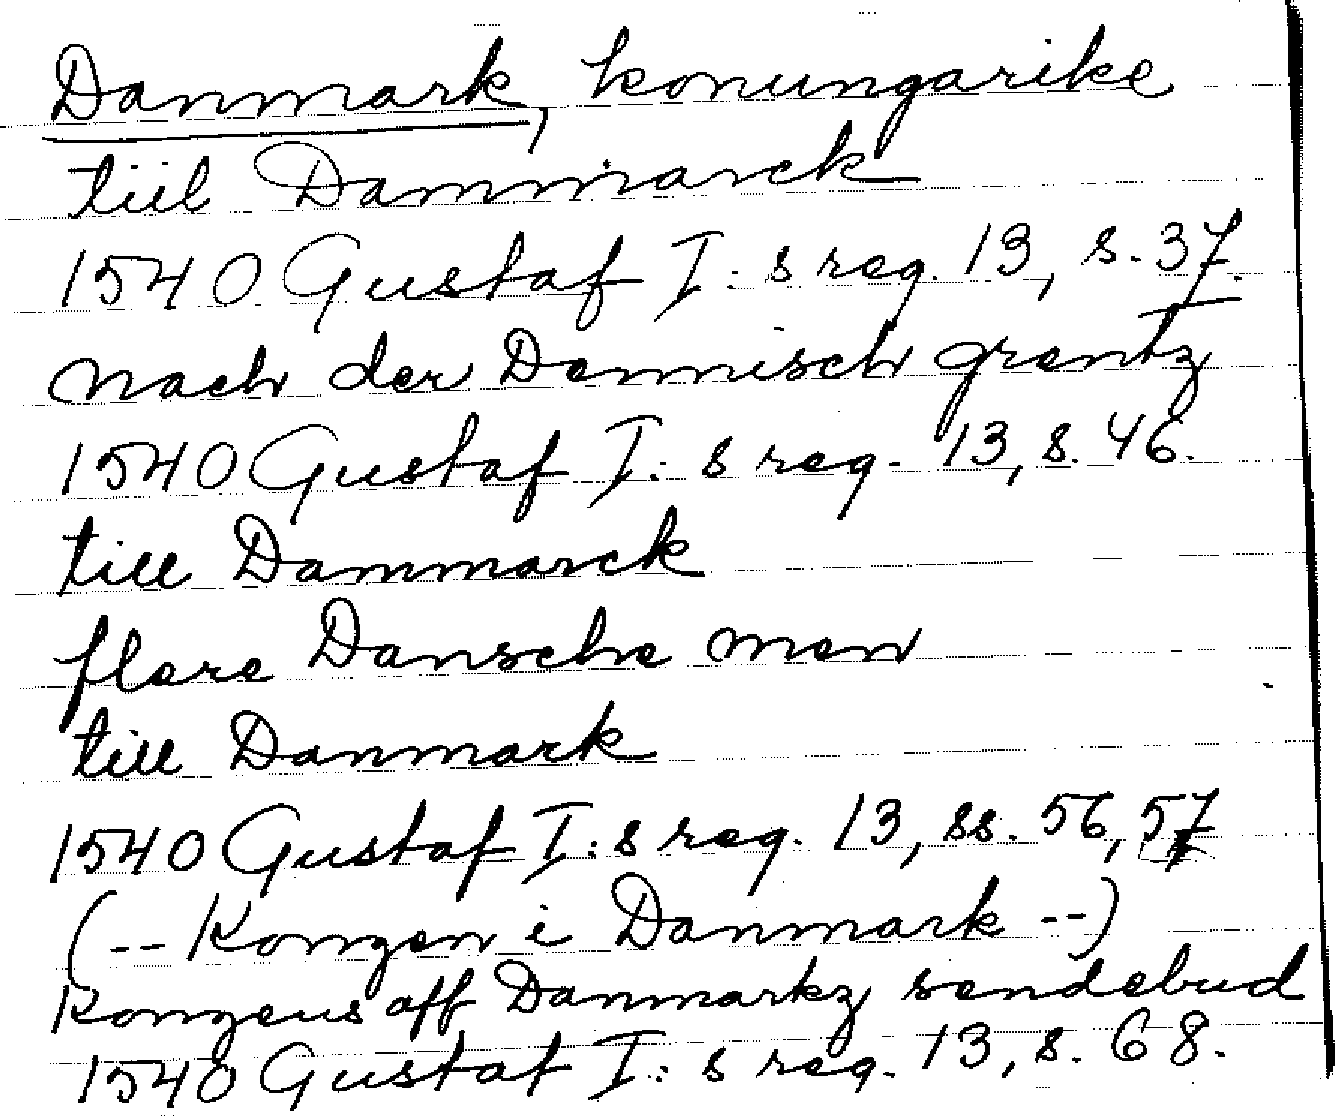 Danmark, konungarike
tiil Danmarck
1540 Gustaf I:s reg. 13, s. 37.
nach der Dennisch grentz
1540 Gustaf I:s reg. 13, s. 46.
till Dammarck
flere Dansche men
till Danmark
1540 Gustaf I:s reg. 13, ss. 56, 57
(-- Kongen i Danmark --)
Kongens aff Danmarkz sendebud
1540 Gustaf I:s reg. 13, s. 68.